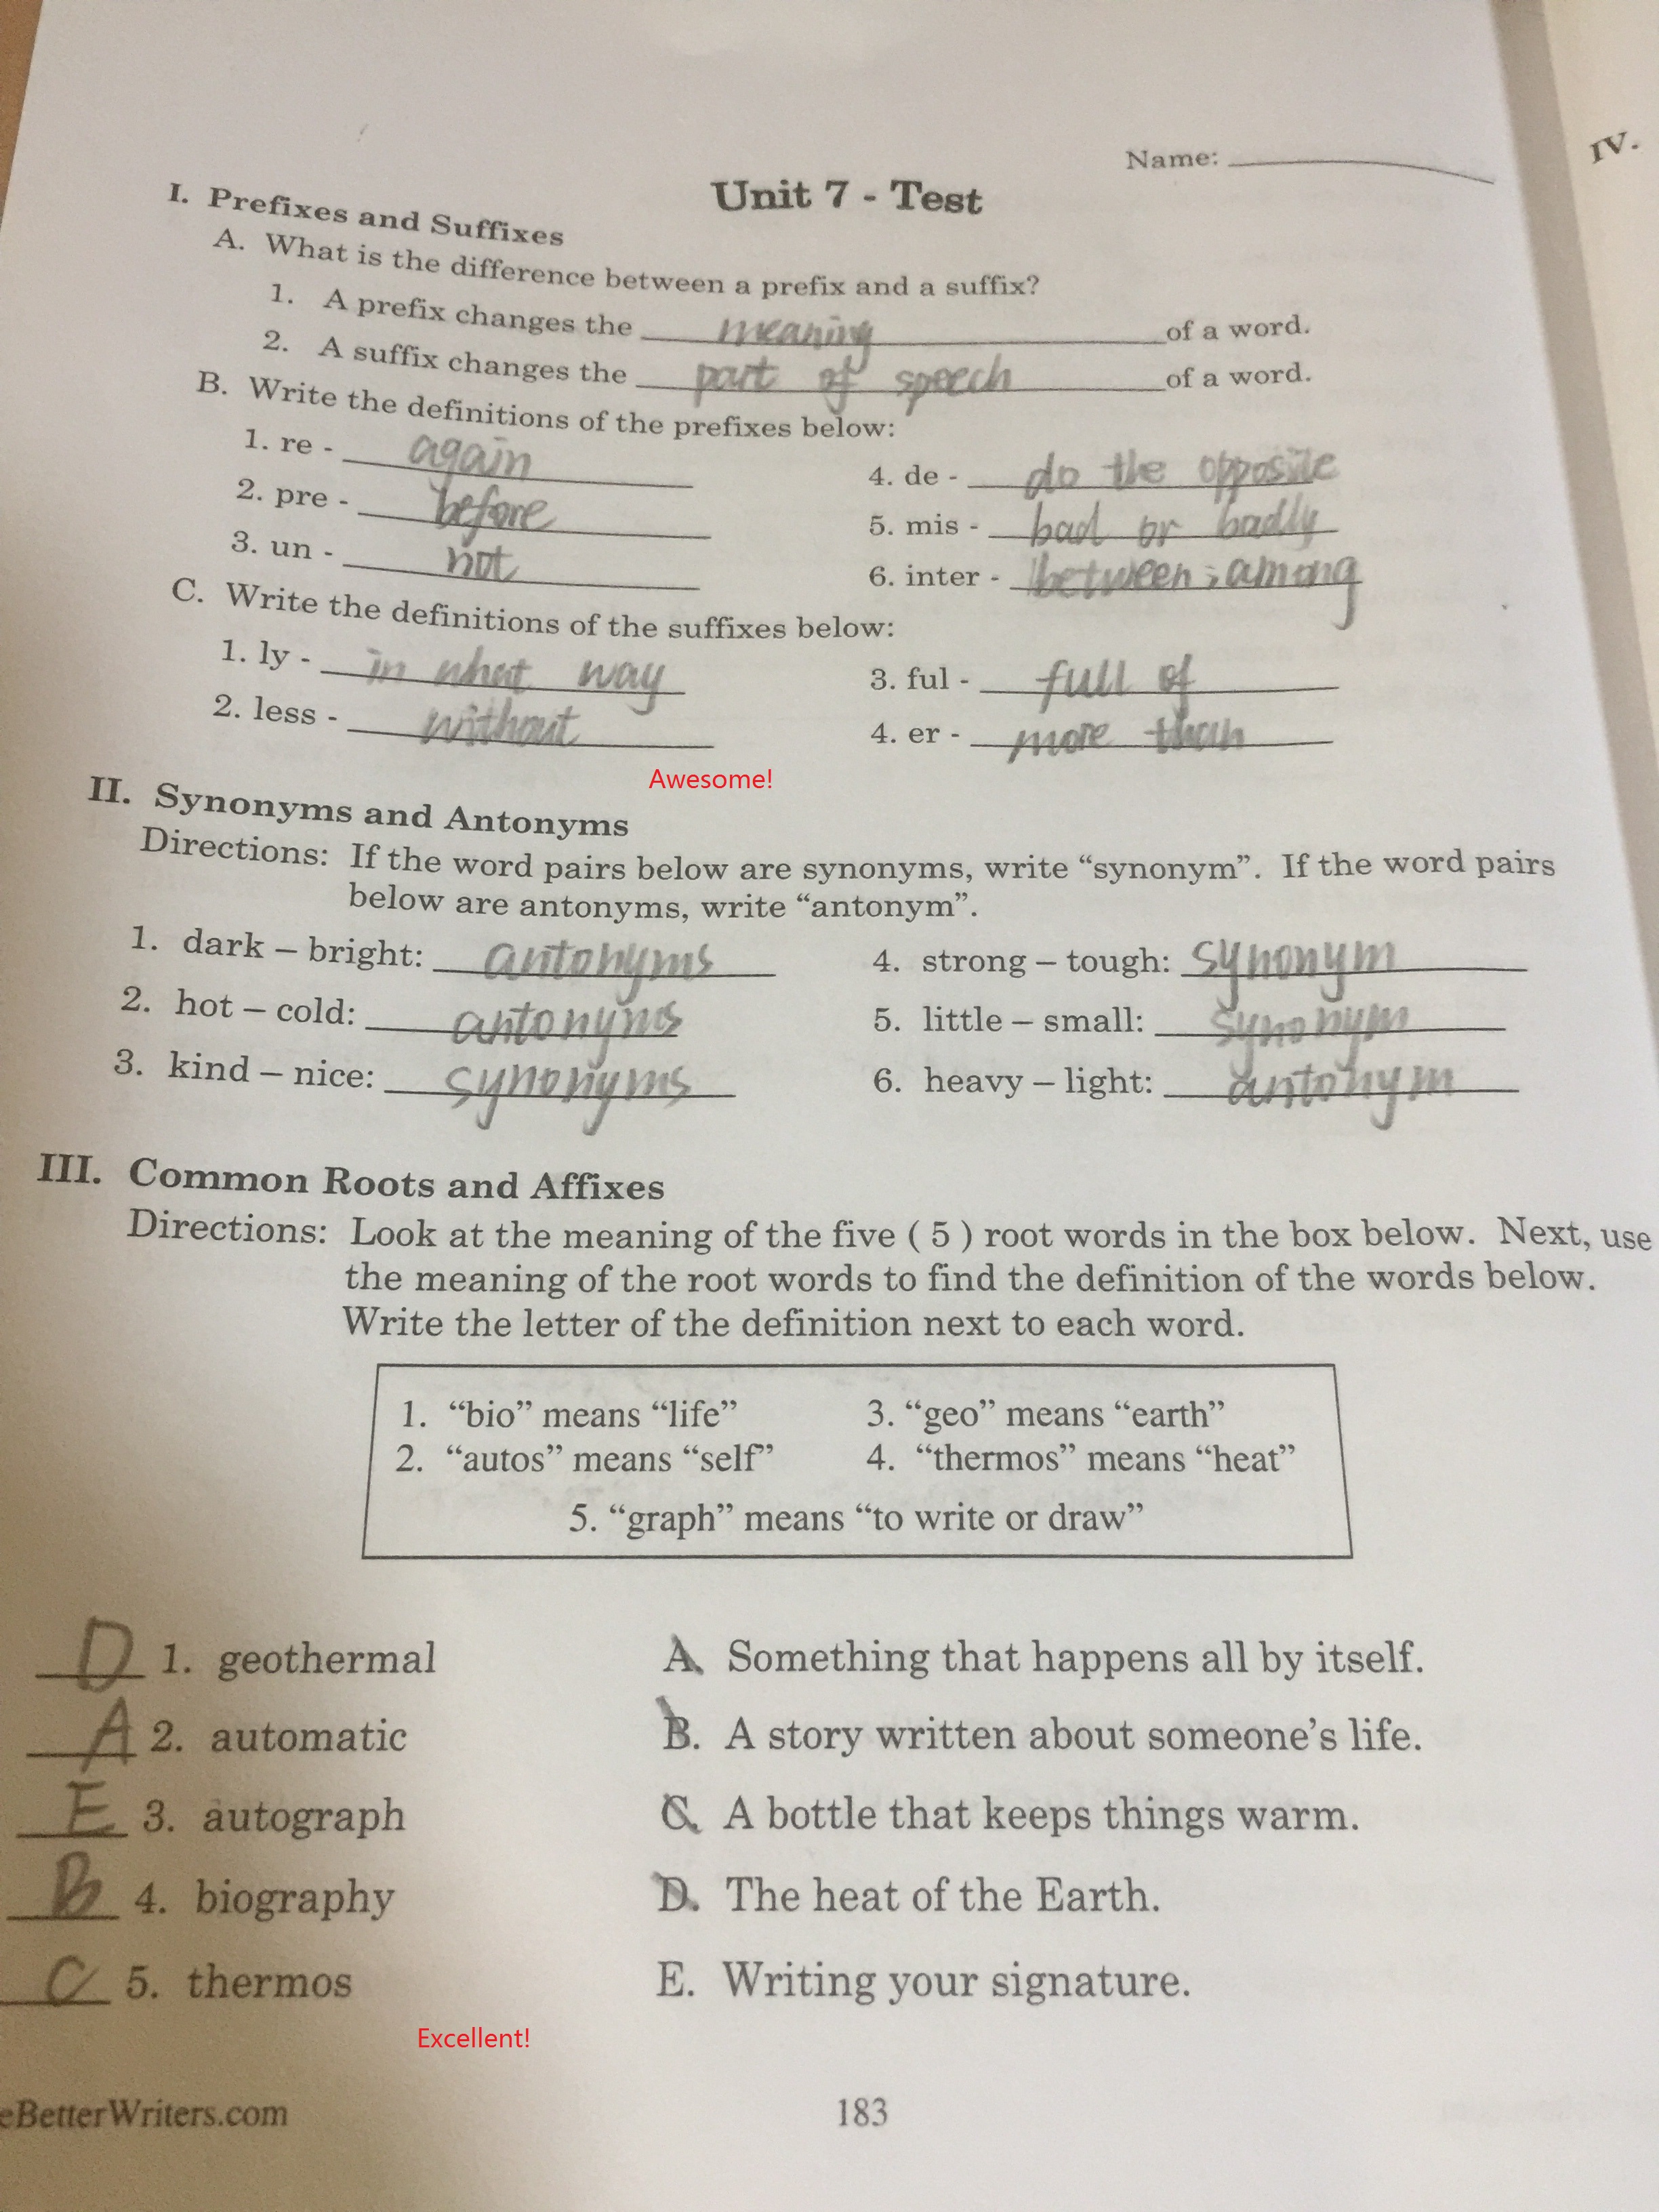 Name:
IV.
Unit 7 - Test
I. Prefixes and Suffixes
A. What is the difference between a prefix and a suffix?
1. A prefix changes the meaning of a word.
2. A suffix changes the part of speech of a word.
B. Write the definitions of the prefixes below:
1. re - again 4. de - do the opposite
2. pre - before 5. mis - bad or badly
3. un - not 6. inter - between; among
C. Write the definitions of the suffixes below:
1. ly - in what way 3. ful - full of
2. less - without 4. er - more than
Awesome!
II. Synonyms and Antonyms
Directions: If the word pairs below are synonyms, write “synonym”. If the word pairs
below are antonyms, write “antonym”.
1. dark – bright: antonyms 4. strong – tough: synonym
2. hot – cold: antonyms 5. little – small: synonym
3. kind – nice: synonyms 6. heavy – light: antonym
III. Common Roots and Affixes
Directions: Look at the meaning of the five ( 5 ) root words in the box below. Next, use
the meaning of the root words to find the definition of the words below.
Write the letter of the definition next to each word.
1. “bio” means “life” 3. “geo” means “earth”
2. “autos” means “self” 4. “thermos” means “heat”
5. “graph” means “to write or draw”
D 1. geothermal A. Something that happens all by itself.
A 2. automatic B. A story written about someone’s life.
E 3. autograph C. A bottle that keeps things warm.
B 4. biography D. The heat of the Earth.
C 5. thermos E. Writing your signature.
Excellent!
eBetterWriters.com 183